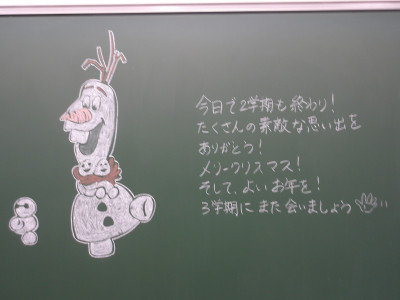 今日で2学期も終わり！
たくさんの素敵な思い出を
ありがとう！
メリークリスマス！
そして、よいお年を！
3学期にまた会いましょう